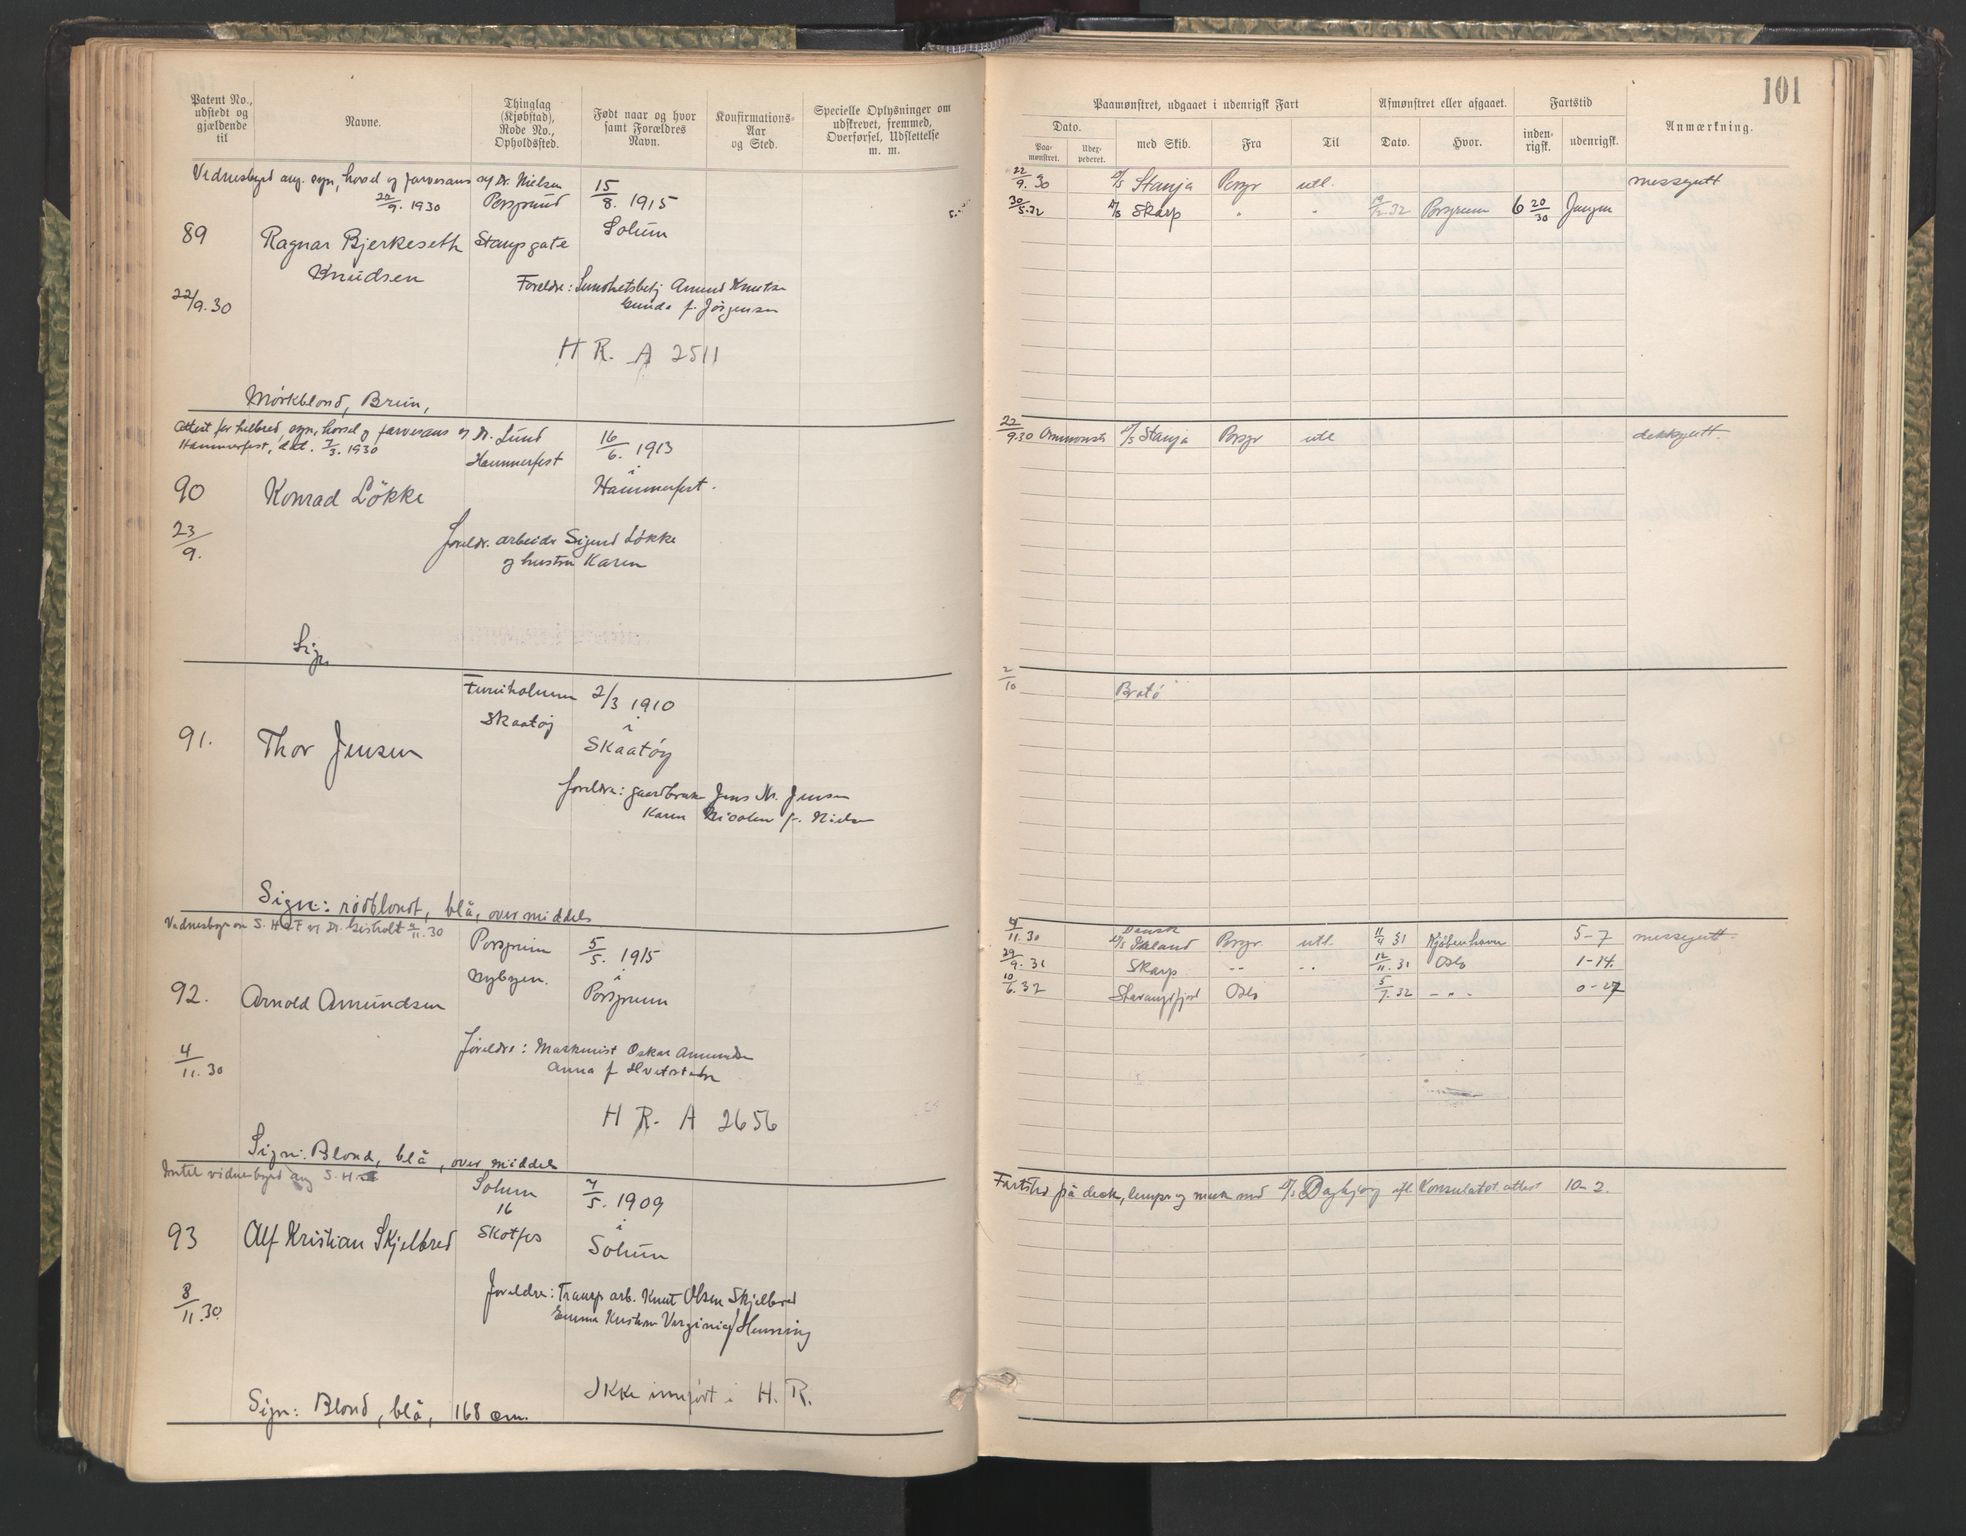 Patent No., udstedt og gjældende til
Navne.
Thinglag (Kjøbstad), Rode No., Opholdssted.
Født naar og hvor samt Forældres Navn.
Konfirmations-Aar og Sted.
Specielle Oplysninger om udskrevet, fremmed, Overførsel, Udslettelse m. m.
Vidnesbyrd ang. syn, hørsel og farvesans af Dr. Nielsen
22/9. 1930
Porsgrund
15/8. 1915
89
Ragnar Bjerkeseth
Stangsgate
Solum
Knudsen
Foreldre: Amund Knutsen
22/9.30
Gunda f. Jørgensen
H R. A 2511
Mørkblond, Brun,
Attest for helbred, syn, hørsel og farvesans af Dr. Lund
Hammerfest, dat. 7/3. 1930
Hammerfest
16/6. 1913
i
90
Konrad Løkke
Hammerfest.
23/9.
foreldr. arbeider Sigurd Løkke
og hustru Karen
Sign
Furuholmen
2/3 1910
Skaatøy
i
91.
Thor Jensen
Skaatøy
foreldre: gaardbruker Jens M. Jensen
Karen Nicoline f. Nielsen
Sign: rødblondt, blå, over middels
Vidnesbyrd om S. H & F af Dr. 4/11.30
Porsgrunn
5/5. 1915
Nybyen.
i
92.
Arnold Amundsen
Porsgrunn
4/11.30
foreldre: Maskinist Oskar Amundsen
Anna f.
H R. A 2656
Sign: Blond, blå, over middels
Intet vidnesbyrd ang S. H
Solum
16
7/5. 1909
93
Alf Kristian Skjelbred
Skotfos
i
Solum
8/11.30
foreldre: Transp arb. Knut Olsen Skjelbred
Emma Kristine Virginie f Henning
Ikke innført i H. R.
Sign: Blond, blå, 168 cm.
101
Paamønstret, udgaaet i udenrigsk Fart
Afmønstret eller afgaaet.
Fartstid
Anmærkning.
Dato.
Paa-mønstret.
Udex-pederet.
med Skib.
Fra
Til
Dato.
Hvor.
inden-rigsk.
udenrigsk.
22/9.30 D/S Stanja Porsgr utl. messegutt
30/5.32 D/S Skarp " " 19/12.32 Porsgrunn 6 20/30 Jungm
22/9.30 D/S Stanja Porsgr utl dekksgutt.
2/10 Bratö
4/11.30 Dansk D/S Island Porsgr. utl. 11/4 31 Kjøbenhavn 5-7 messegutt
29/9.31 Skarp. -- " 12/11.31 Oslo 1-14.
10/6.32 Stavangerfjord Oslo 5/7.32 - " - 0-27
Fartstid på dæk, lemper og mek med D/S Dagbjørg ifl. Konsulatets attest 10-2.